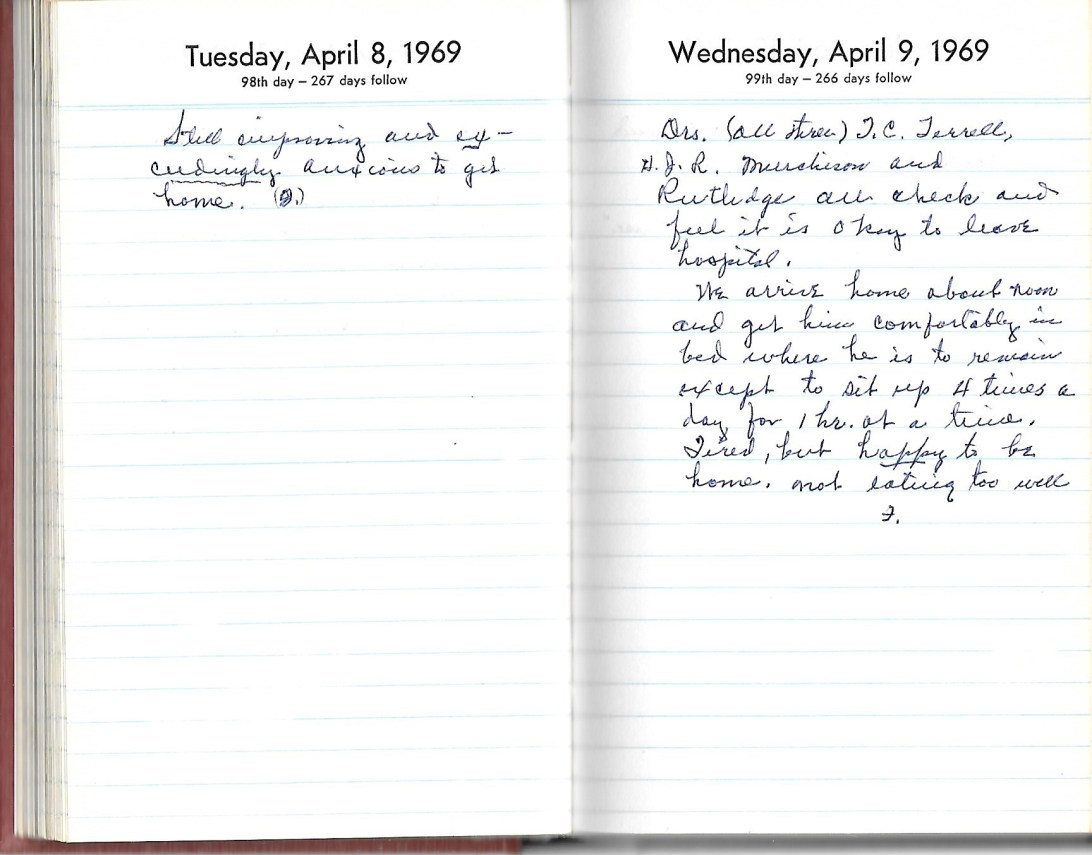 Tuesday, April 8, 1969
98th day – 267 days follow
Still improving and ex-
ceedingly anxious to get
home. (J.)
Wednesday, April 9, 1969
99th day – 266 days follow
Drs. (all three) T.C. Terrell,
H.J.R. Murchison and
Rutledge all check and
feel it is okay to leave
hospital.
We arrive home about noon
and get him comfortably in
bed where he is to remain
except to sit up 4 times a
day for 1 hr. at a time.
Tired, but happy to be
home. not eating too well
J.